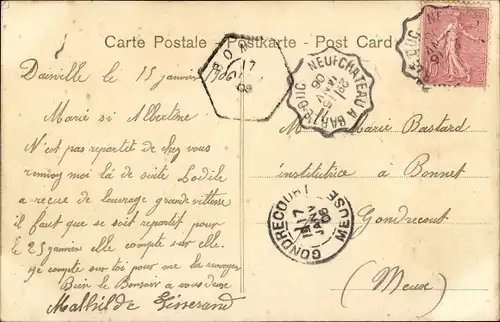 Carte Postale - Postkarte - Post Card
Dainville le 15 janvier 1906
Marie si Albertine
N'est pas repartit de chez vous
renvoy moi là de suite Lodile
a reçue de louvrage grande vittesse
il faut que se soit repartit pour
le 25 janvier elle compte sur elle.
je compte sur toi pour me la renvoyer
Bien le Bonsoir a vous deux
Mathilde Tisserand
NEUFCHATEAU A BAR-LE-DUC
GONDRECOURT MEUSE
17 JANV 06
Marie Bastard
institutrice à Bonnet
Gondrecourt
(Meuse)